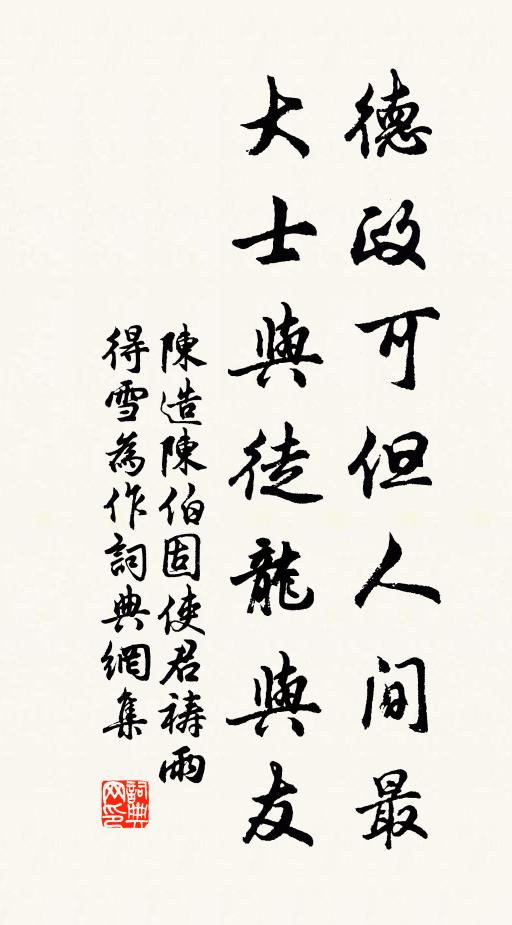 德政可但人間最
大士與徒龍與友
陳造陳伯固使君禱雨
得雪為作詞典網集
詞典网印